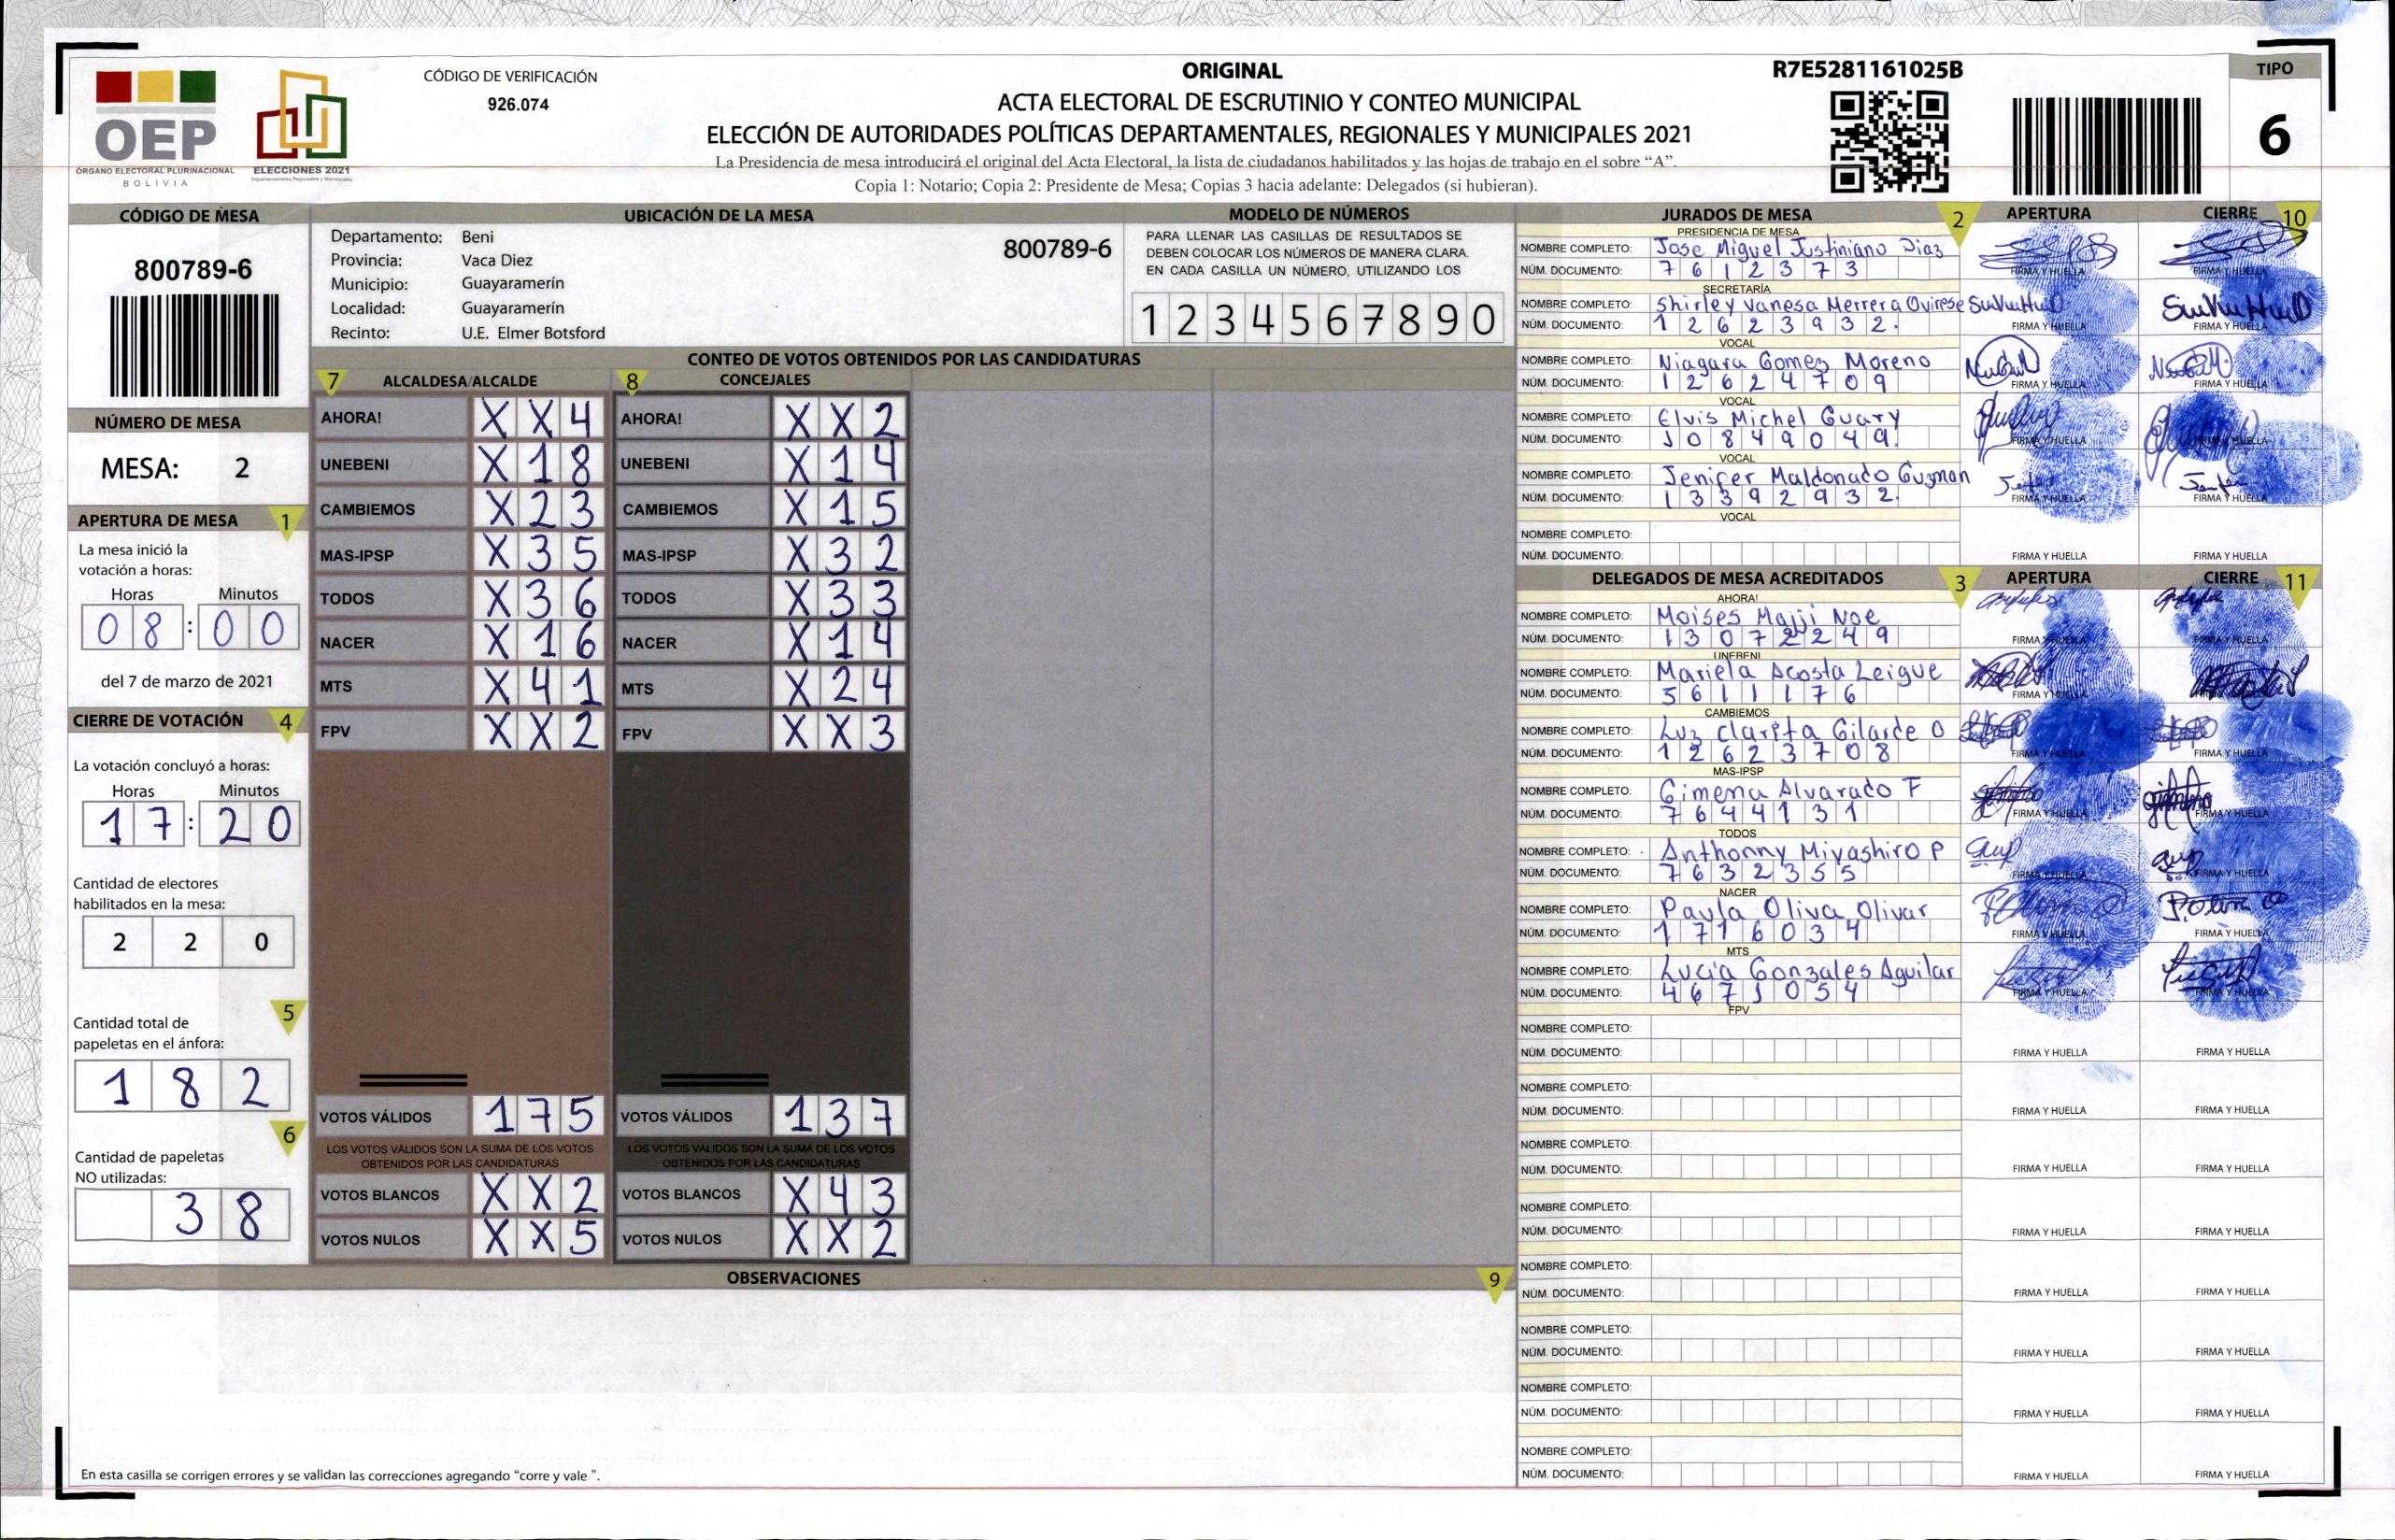 OEP
ÓRGANO ELECTORAL PLURINACIONAL
BOLIVIA
ELECCIONES 2021
CÓDIGO DE VERIFICACIÓN
926.074
ORIGINAL
ACTA ELECTORAL DE ESCRUTINIO Y CONTEO MUNICIPAL
ELECCIÓN DE AUTORIDADES POLÍTICAS DEPARTAMENTALES, REGIONALES Y MUNICIPALES 2021
La Presidencia de mesa introducirá el original del Acta Electoral, la lista de ciudadanos habilitados y las hojas de trabajo en el sobre “A”.
Copia 1: Notario; Copia 2: Presidente de Mesa; Copias 3 hacia adelante: Delegados (si hubieran).
R7E5281161025B
TIPO
6
CÓDIGO DE MESA
800789-6
NÚMERO DE MESA
MESA: 2
APERTURA DE MESA 1
La mesa inició la
votación a horas:
Horas Minutos
08:00
del 7 de marzo de 2021
CIERRE DE VOTACIÓN 4
La votación concluyó a horas:
Horas Minutos
17:20
Cantidad de electores
habilitados en la mesa:
2 2 0
5
Cantidad total de
papeletas en el ánfora:
1 8 2
6
Cantidad de papeletas
NO utilizadas:
3 8
UBICACIÓN DE LA MESA
Departamento: Beni
Provincia: Vaca Diez
Municipio: Guayaramerín
Localidad: Guayaramerín
Recinto: U.E. Elmer Botsford
800789-6
MODELO DE NÚMEROS
PARA LLENAR LAS CASILLAS DE RESULTADOS SE
DEBEN COLOCAR LOS NÚMEROS DE MANERA CLARA.
EN CADA CASILLA UN NÚMERO, UTILIZANDO LOS
1 2 3 4 5 6 7 8 9 0
CONTEO DE VOTOS OBTENIDOS POR LAS CANDIDATURAS
7 ALCALDESA/ALCALDE
AHORA! X X 4
UNEBENI X 1 8
CAMBIEMOS X 2 3
MAS-IPSP X 3 5
TODOS X 3 6
NACER X 1 6
MTS X 4 1
FPV X X 2
VOTOS VÁLIDOS 1 7 5
LOS VOTOS VÁLIDOS SON LA SUMA DE LOS VOTOS
OBTENIDOS POR LAS CANDIDATURAS
VOTOS BLANCOS X X 2
VOTOS NULOS X X 5
8 CONCEJALES
AHORA! X X 2
UNEBENI X 1 4
CAMBIEMOS X 1 5
MAS-IPSP X 3 2
TODOS X 3 3
NACER X 1 4
MTS X 2 4
FPV X X 3
VOTOS VÁLIDOS 1 3 7
LOS VOTOS VÁLIDOS SON LA SUMA DE LOS VOTOS
OBTENIDOS POR LAS CANDIDATURAS
VOTOS BLANCOS X 4 3
VOTOS NULOS X X 2
OBSERVACIONES 9
En esta casilla se corrigen errores y se validan las correcciones agregando “corre y vale ”.
JURADOS DE MESA 2 APERTURA CIERRE 10
PRESIDENCIA DE MESA
NOMBRE COMPLETO: Jose Miguel Justiniano Diaz
NÚM. DOCUMENTO: 7612373 FIRMA Y HUELLA FIRMA Y HUELLA
SECRETARÍA
NOMBRE COMPLETO: Shirley Vanesa Herrera
NÚM. DOCUMENTO: 12623932. FIRMA Y HUELLA FIRMA Y HUELLA
VOCAL
NOMBRE COMPLETO: Niagara Gomez Moreno
NÚM. DOCUMENTO: 12624709 FIRMA Y HUELLA FIRMA Y HUELLA
VOCAL
NOMBRE COMPLETO: Elvis Michel Guary
NÚM. DOCUMENTO: 10849049. FIRMA Y HUELLA FIRMA Y HUELLA
VOCAL
NOMBRE COMPLETO: Jenifer Maldonado Guzman
NÚM. DOCUMENTO: 13392932. FIRMA Y HUELLA FIRMA Y HUELLA
VOCAL
NOMBRE COMPLETO:
NÚM. DOCUMENTO: FIRMA Y HUELLA FIRMA Y HUELLA
DELEGADOS DE MESA ACREDITADOS 3 APERTURA CIERRE 11
AHORA!
NOMBRE COMPLETO: Moises Majji Noe
NÚM. DOCUMENTO: 13072249 FIRMA Y HUELLA FIRMA Y HUELLA
UNEBENI
NOMBRE COMPLETO: Mariela Acosta Leigue
NÚM. DOCUMENTO: 5611176 FIRMA Y HUELLA FIRMA Y HUELLA
CAMBIEMOS
NOMBRE COMPLETO: Luz Clarita Gilarde O
NÚM. DOCUMENTO: 12623708 FIRMA Y HUELLA FIRMA Y HUELLA
MAS-IPSP
NOMBRE COMPLETO: Gimena Alvarado F
NÚM. DOCUMENTO: 7644131 FIRMA Y HUELLA FIRMA Y HUELLA
TODOS
NOMBRE COMPLETO: Anthonny Miyashiro P
NÚM. DOCUMENTO: 7632355 FIRMA Y HUELLA FIRMA Y HUELLA
NACER
NOMBRE COMPLETO: Paula Oliva Olivar
NÚM. DOCUMENTO: 1716034 FIRMA Y HUELLA FIRMA Y HUELLA
MTS
NOMBRE COMPLETO: Lucia Gonzales Aguilar
NÚM. DOCUMENTO: 4671054 FIRMA Y HUELLA FIRMA Y HUELLA
FPV
NOMBRE COMPLETO:
NÚM. DOCUMENTO: FIRMA Y HUELLA FIRMA Y HUELLA
NOMBRE COMPLETO:
NÚM. DOCUMENTO: FIRMA Y HUELLA FIRMA Y HUELLA
NOMBRE COMPLETO:
NÚM. DOCUMENTO: FIRMA Y HUELLA FIRMA Y HUELLA
NOMBRE COMPLETO:
NÚM. DOCUMENTO: FIRMA Y HUELLA FIRMA Y HUELLA
NOMBRE COMPLETO:
NÚM. DOCUMENTO: FIRMA Y HUELLA FIRMA Y HUELLA
NOMBRE COMPLETO:
NÚM. DOCUMENTO: FIRMA Y HUELLA FIRMA Y HUELLA
NOMBRE COMPLETO:
NÚM. DOCUMENTO: FIRMA Y HUELLA FIRMA Y HUELLA
NOMBRE COMPLETO:
NÚM. DOCUMENTO: FIRMA Y HUELLA FIRMA Y HUELLA